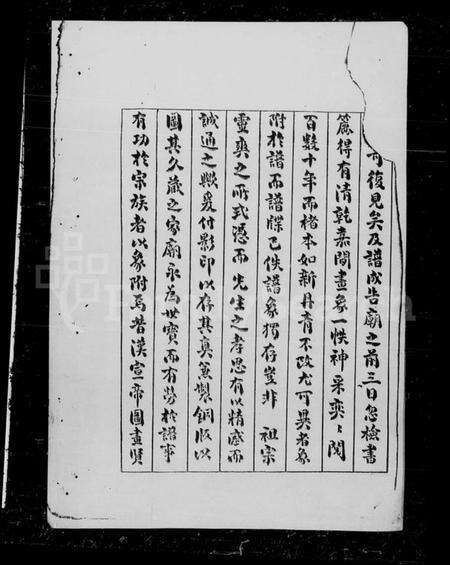 可復見矣及譜成告廟之前三日忽檢書
篋得有清乾嘉間畫象一帙神采奕〻閱
百數十年而楮本如新丹青不改尤可異者象
附於譜而譜牒已佚譜象獨存豈非 祖宗
靈爽之所式憑而 先生之孝思有以精感而
誠通之歟爰付影印以存其真兼製銅版以
圖其久藏之家廟永為世寶而有勞於譜事
有功於宗族者以象附焉昔漢宣帝圖畫賢